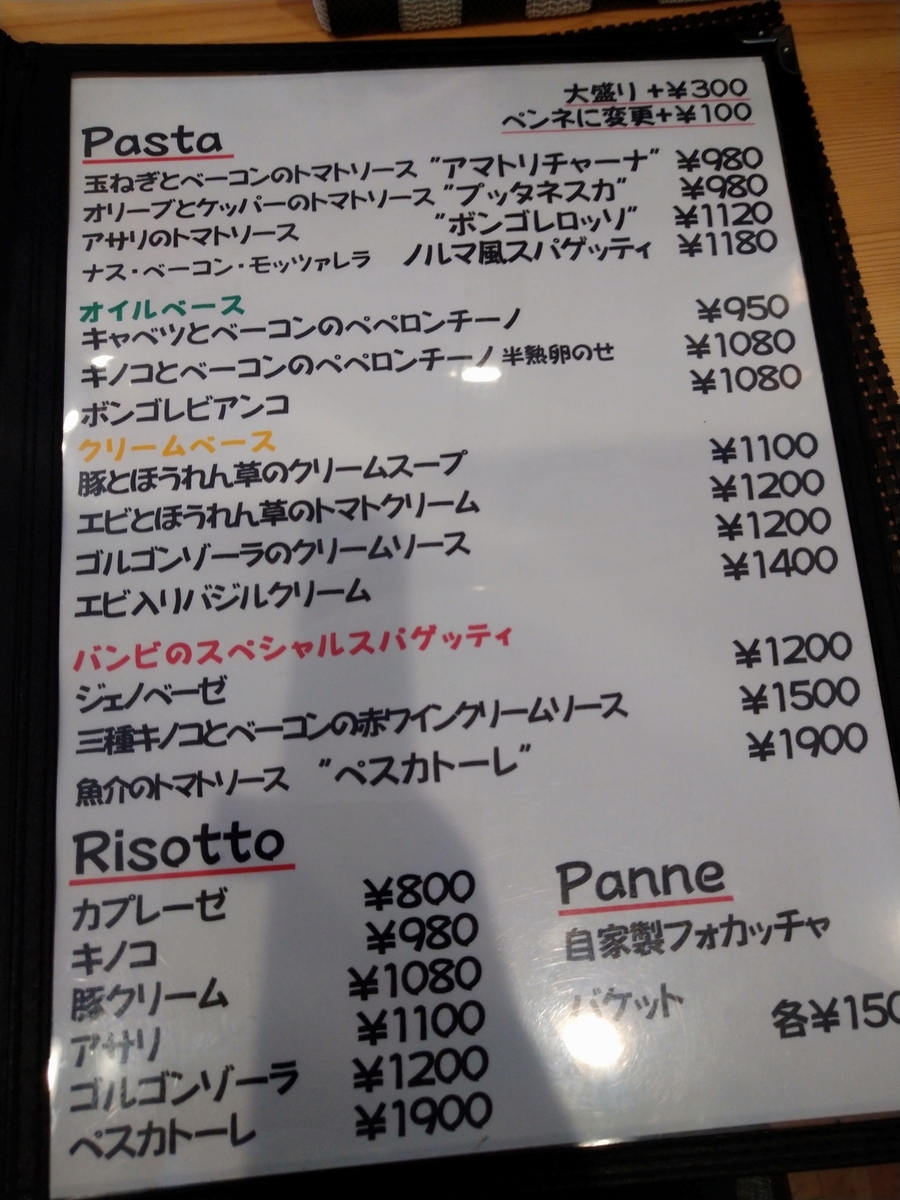 大盛り +¥300
ペンネに変更+¥100
Pasta
玉ねぎとベーコンのトマトソース "アマトリチャーナ" ¥980
オリーブとケッパーのトマトソース "プッタネスカ" ¥980
アサリのトマトソース "ボンゴレロッソ" ¥1120
ナス・ベーコン・モッツァレラ ノルマ風スパゲッティ ¥1180
オイルベース
キャベツとベーコンのペペロンチーノ ¥950
キノコとベーコンのペペロンチーノ 半熟卵のせ ¥1080
ボンゴレビアンコ ¥1080
クリームベース
豚とほうれん草のクリームスープ ¥1100
エビとほうれん草のトマトクリーム ¥1200
ゴルゴンゾーラのクリームソース ¥1200
エビ入りバジルクリーム ¥1400
バンビのスペシャルスパゲッティ
ジェノベーゼ ¥1200
三種キノコとベーコンの赤ワインクリームソース ¥1500
魚介のトマトソース "ペスカトーレ" ¥1900
Risotto
カプレーゼ ¥800
キノコ ¥980
豚クリーム ¥1080
アサリ ¥1100
ゴルゴンゾーラ ¥1200
ペスカトーレ ¥1900
Panne
自家製フォカッチャ
バケット 各¥150